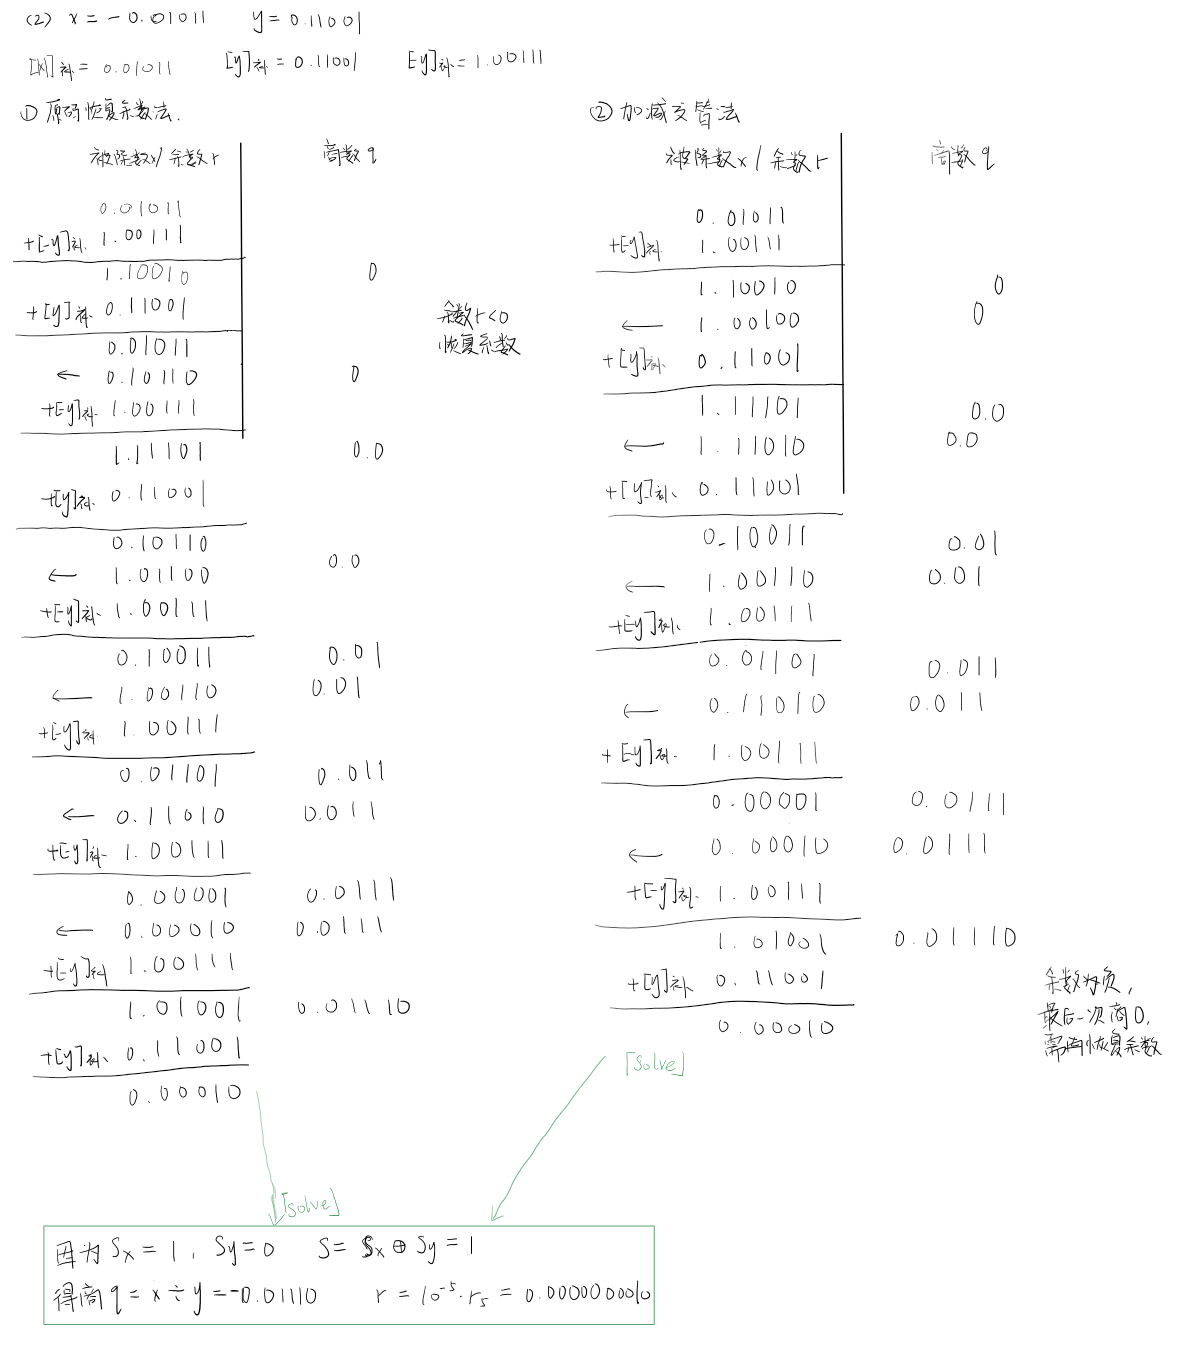 (2) x = -0.01011 y = 0.11001
[|x|]补 = 0.01011 [y]补 = 0.11001 [-y]补 = 1.00111
① 原码恢复余数法.
被除数x/余数r 商数q
0.01011
+[-y]补. 1.00111
1.10010 0
+[y]补. 0.11001
0.01011
← 0.10110 0
+[-y]补. 1.00111
1.11101 0.0
+[y]补. 0.11001
0.10110
← 1.01100 0.0
+[-y]补. 1.00111
0.10011 0.01
← 1.00110 0.01
+[-y]补. 1.00111
0.01101 0.011
← 0.11010 0.011
+[-y]补. 1.00111
0.00001 0.0111
← 0.00010 0.0111
+[-y]补 1.00111
1.01001 0.01110
+[y]补. 0.11001
0.00010
余数r<0
恢复余数
② 加减交替法
被除数x/余数r 商数q
0.01011
+[-y]补. 1.00111
1.10010 0
← 1.00100 0
+[y]补. 0.11001
1.11101 0.0
← 1.11010 0.0
+[y]补. 0.11001
0.10011 0.01
← 1.00110 0.01
+[-y]补. 1.00111
0.01101 0.011
← 0.11010 0.011
+[-y]补. 1.00111
0.00001 0.0111
← 0.00010 0.0111
+[-y]补. 1.00111
1.01001 0.01110
+[y]补. 0.11001
0.00010
余数为负,
最后一次商0,
需再恢复余数
[Solve]
[Solve]
因为 Sx = 1, Sy = 0 S = Sx ⊕ Sy = 1
得商 q = x ÷ y = -0.01110 r = 10⁻⁵·r₅ = 0.0000000010